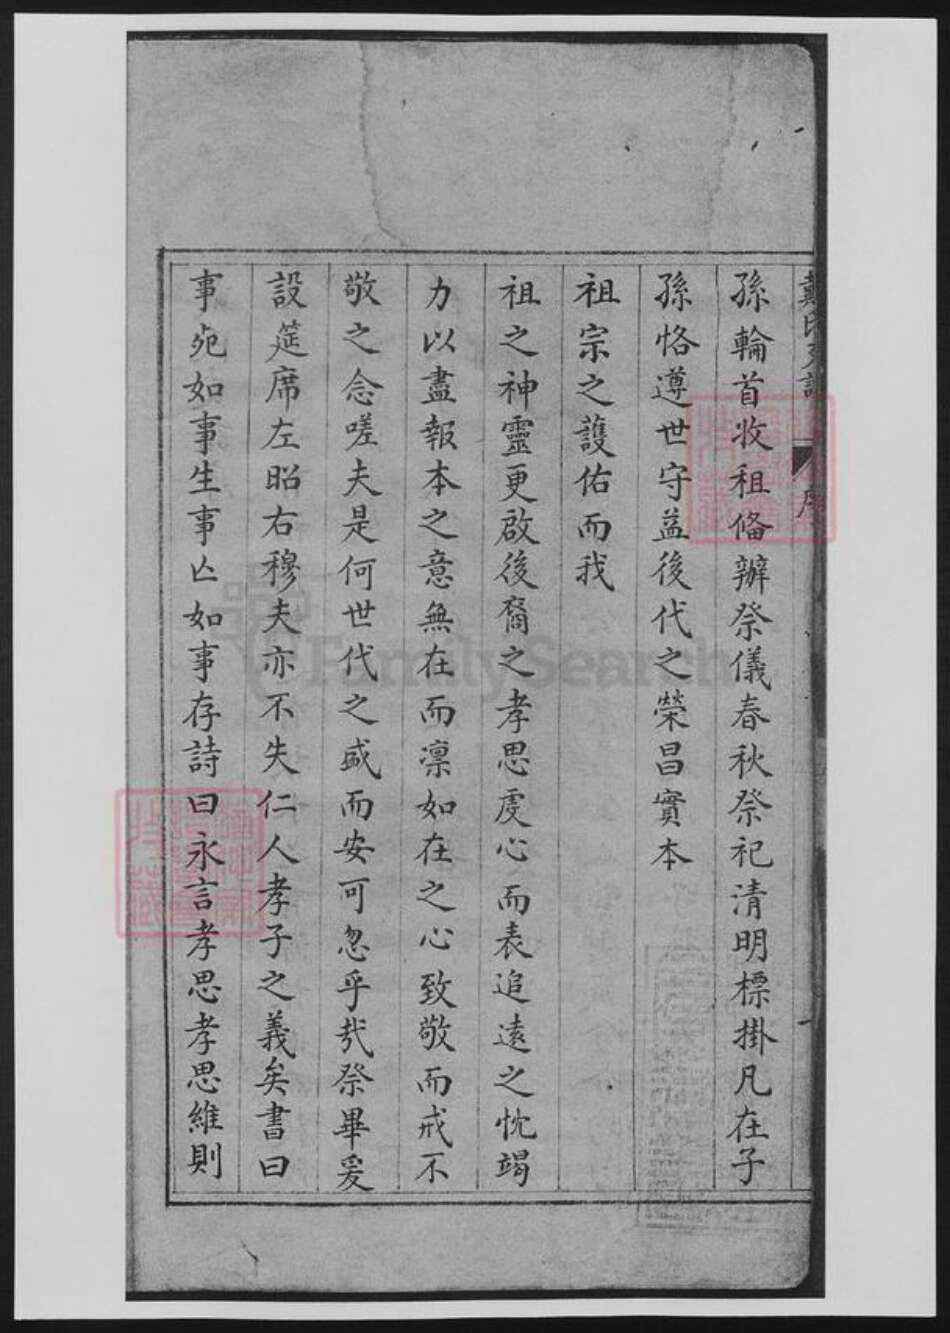 戴氏支譜
序
孫輪首收租俻辦祭儀春秋祭祀清明標掛凡在子
孫恪遵世守益後代之榮昌實本
祖宗之護佑而我
祖之神靈更啟後裔之孝思虔心而表追遠之忱竭
力以盡報本之意無在而凛如在之心致敬而戒不
敬之念嗟夫是何世代之盛而安可忽乎㢤祭畢爰
設筵席左昭右穆夫亦不失仁人孝子之義矣書曰
事宛如事生事亡如事存詩曰永言孝思孝思維則
FamilySearch